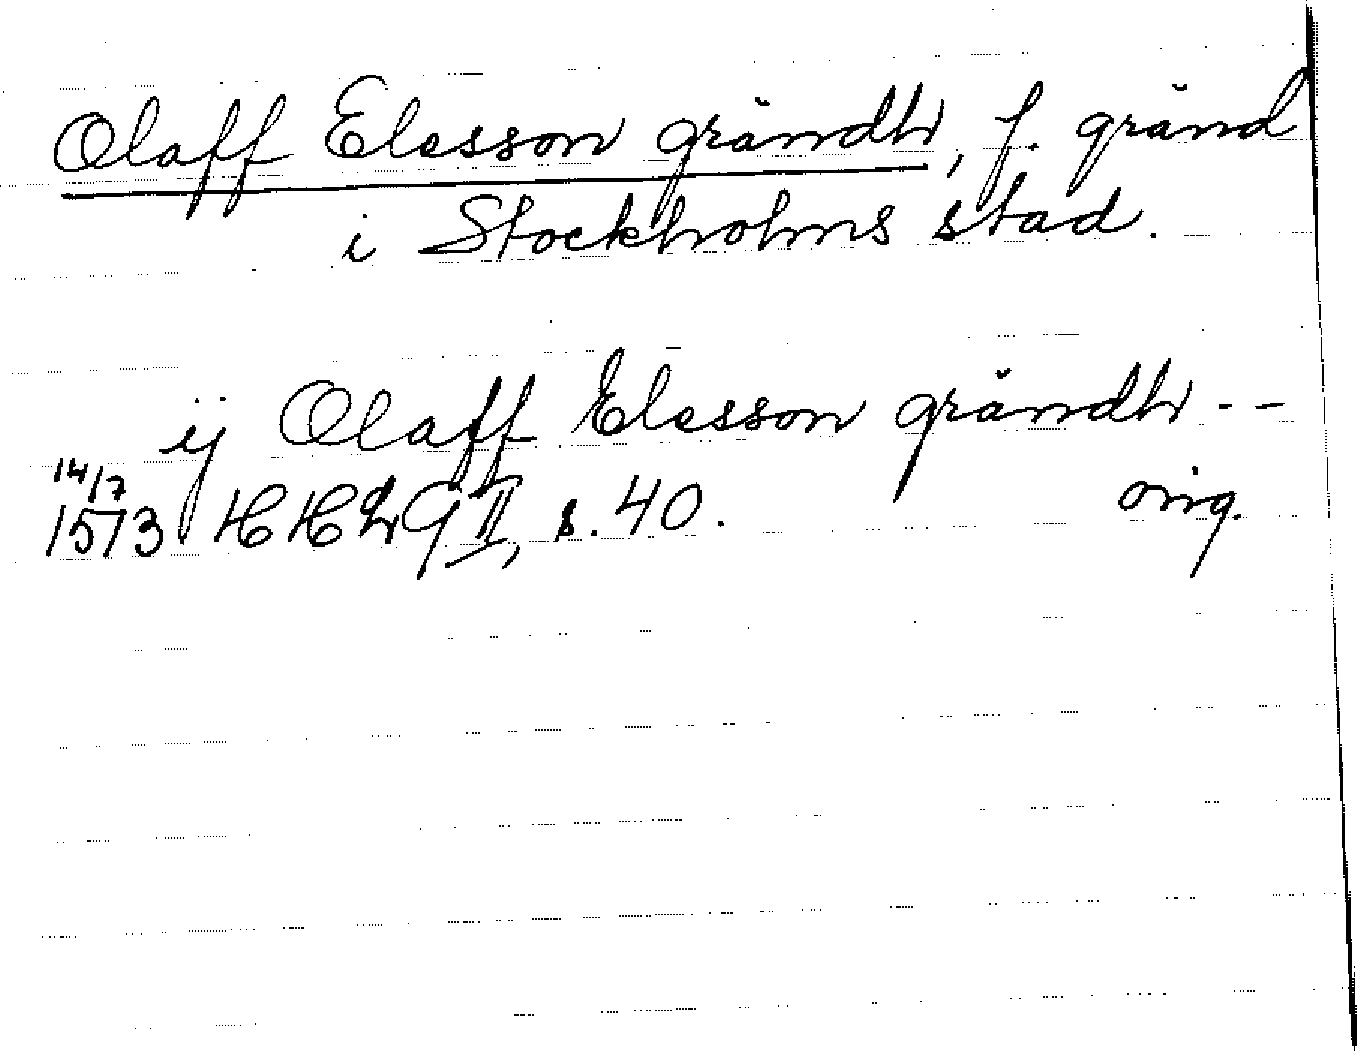 Olaff Elesson grändh, f. gränd
i Stockholms stad.
ij Olaff Elesson grändh --
14/7
1573 HHLG II, s. 40. orig.